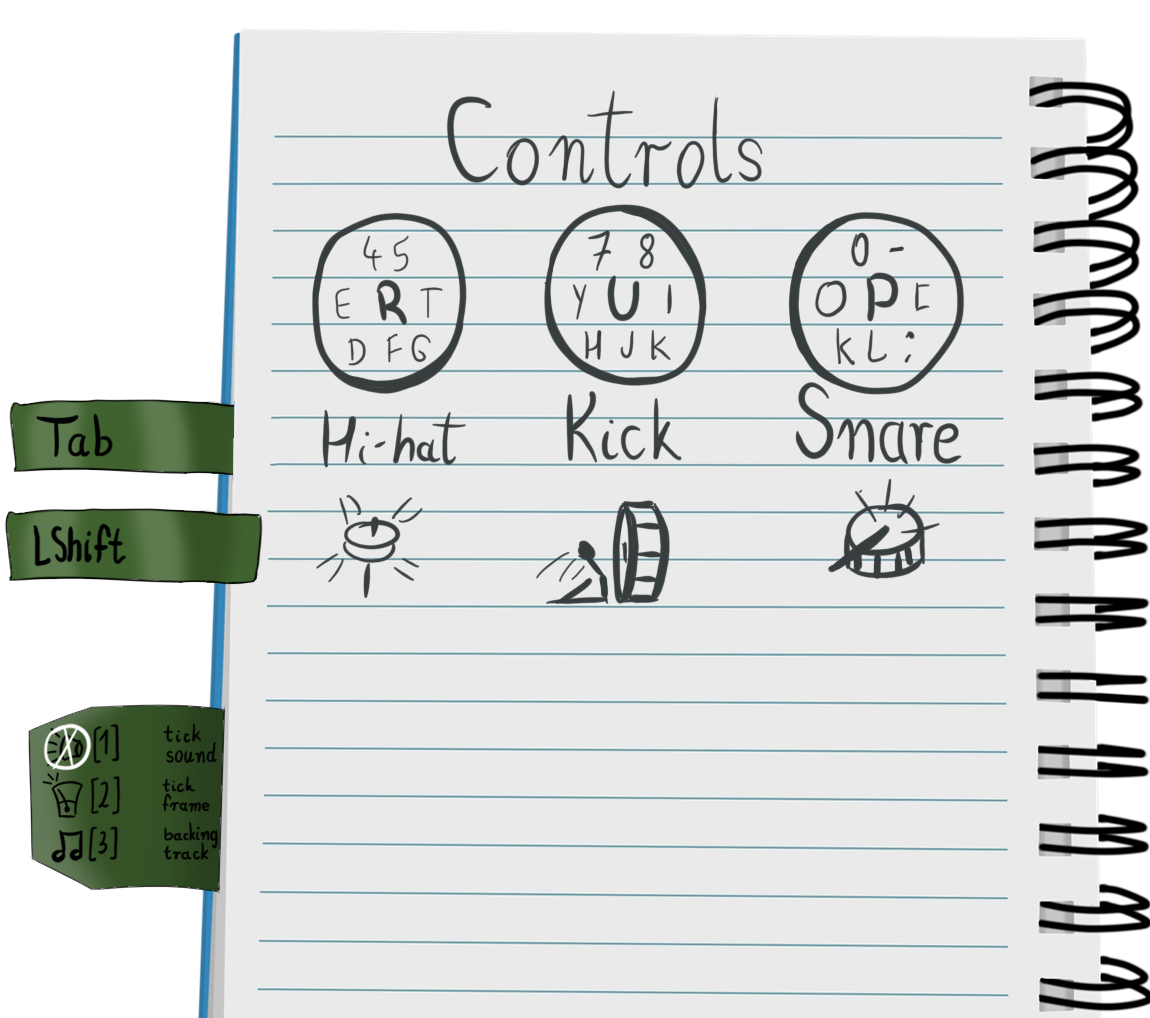 Controls
4 5
E R T
D F G
7 8
Y U I
H J K
0 -
O P [
K L ;
Hi-hat
Kick
Snare
Tab
LShift
[1] tick sound
[2] tick frame
[3] backing track